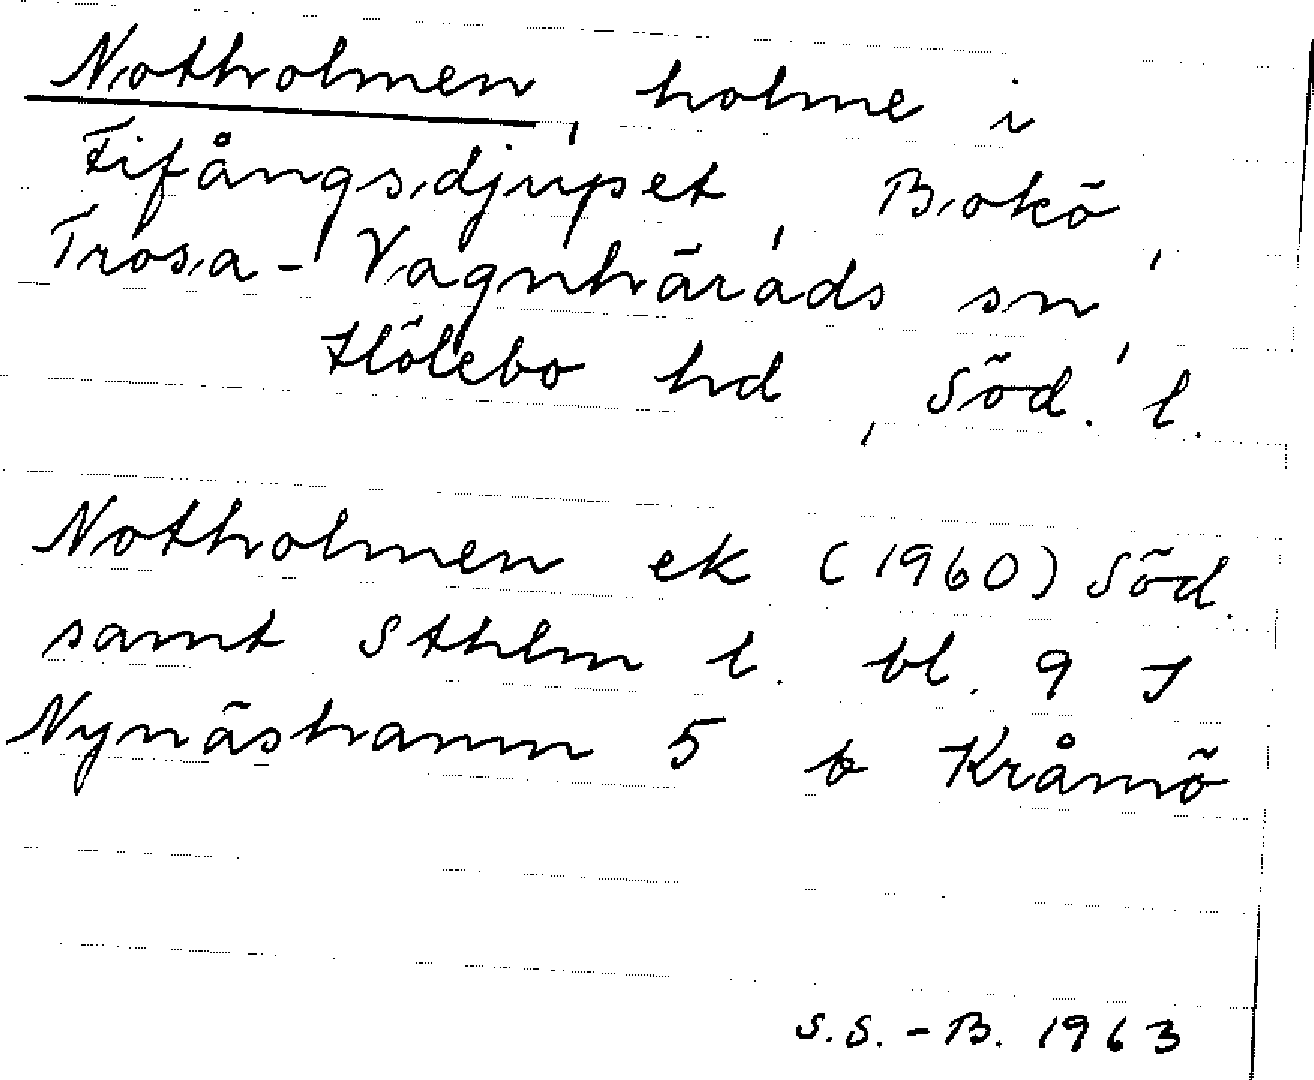 Notholmen, holme i
Fifångsdjupet, Bokö,
Trosa-Vagnhärads sn,
Hölebo hd, Söd. l.
Notholmen ek (1960) Söd.
samt Sthlm l. bl. 9 J
Nynäshamn 5 b Krämö
S.S.-B. 1963